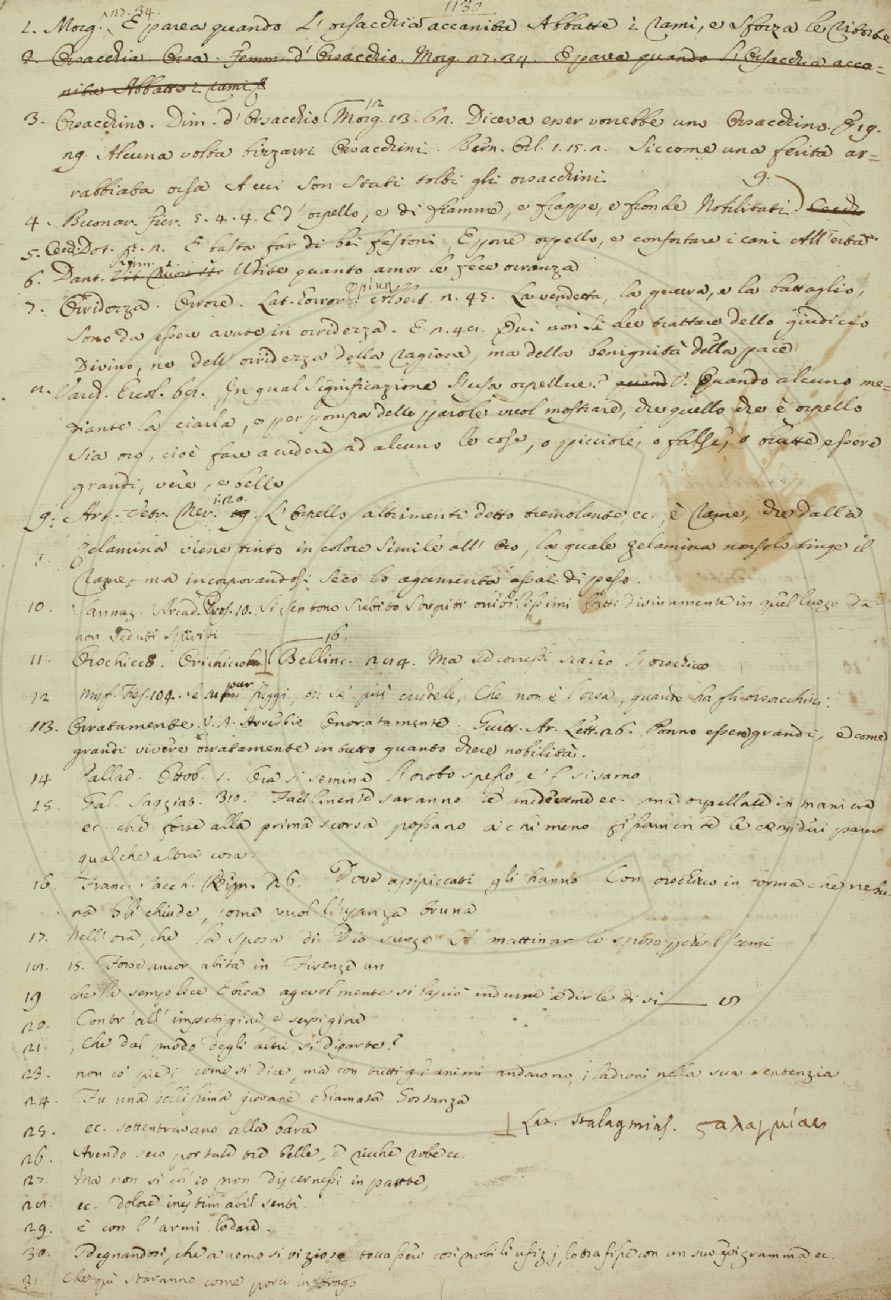 1132
1. Morg. 27. 34. E parea quando l'orsacchia accanita Abbatte i rami, e sforza le ritorte
2. Orsacchia Orsa. Femm. d'Orsacchio. Morg. 27. 34. E parea quando l'Orsacchia acca=
nita Abbatte i rami
3. Orsacchino. Dim. d'Orsacchio Morg. 13. 62. Diceva esser vorrebbe uno Orsacchino. 19.
29. Alcuna volta bizzarri Orsacchini. Bern. Orl. 1. 15. 2. Siccome una ferita ar=
rabbiata orsa A cui son stati tolti gli orsacchini 9.
4. Buonar. Fier. 5. 4. 4. E d'orpello, e di fiamme, e frappe, e fronde Nobilitati
5. Cecc. Dot. E basta far di bei festoni Espore orpello, e confortare i cani all'erta
6. Dant. rim. 2. Udite quanto amor le fece orranza
7. Orridezza. Orrore. Lat. horror. n. 45. La vendetta, la guerra, e la battaglia,
sono da essere avute in orridezza. E n. 40. Qui non si dee trattare dello giudicio
Divino, nè dell'orridezza della ragione, ma della benignità della pace
8. Varch. Ercol. 62. In qual significazione s'usa orpellare? V. Quando alcuno me=
diante la ciarla, e per pompa delle parole vuol mostrare, che quello che è orpello
sia oro, cioè fare a credere ad alcuno le cose, o picciole, o false, o brutte essere
grandi, vere, e belle
9. Art. Vetr. Ner. 120. L'Orpello altrimenti detto tremolante, ec., è Rame, che dalla
zelamina viene tinto in colore simile all'Oro, la quale zelamina non solo tinge il
Rame, ma incorporandosi seco lo augumenta assai di peso.
10. Sannaz. Arcad. Pros. 10. Si sentono subito strepiti orribilissimi fatti divinamente in quel luogo da
non veduti spiriti
11. Orochicco. Orichicco. 16 Bellinc. 214. Ma ed conessi scalzo s'orochicco
12 Misf. Fies. 104. Se tu pur fuggi, tu se' più crudele, Che non è l'orsa, quando ha gli orsacchini:
13. Orratamente V. A. Avverbio Onoratamente. Guitt. Ar. Lett. 26. Ponno essere grandi, e come
grandi vivere orratamente in tutto quanto chere nobilità.
14 Pallad. Ottob. 1. Ora si semina l'orobo spesso, e 'l sisamo
15. Gal. Saggiat. 310. Facilmente saranno le medesime ec. ma orpellate in maniera
ec. che forse alla prima scorsa possano a chi meno fissamente le consideri parer
qualche altra cosa.
16. Franc. Sacch. Rim. 26. Dove appiccati gli hanno Con orochicco in forma che nessu-
na gli chiude, come vuol l'usanza bruna
17. Nell'ora, che la sposa di Dio surge A mattinar lo sposo perchè l'ami
18. 15. Forse ancor abita in Firenze un
19 che la semplice Ebrea agevolmente si lasciò indurre a dirle di sì
20. Contr'all'impetigine, e serpigine
21. , che dal modo degli altri si diparte?
23. non co' piedi come si dice, ma con tutti gli animi andarono i ladroni nella sua sentenzia
24. Fu una bellissima giovane chiamata Gostanza
25. ec. sottentravano alla bara Lat. stalagmias. σταλαγμίας
26. Avendo seco portate tre belle, e ricche robe ec.
27. Ma non sì ch'io non discernessi in parte,
28. ec. Dolore inestimabil sento.
29. e con l'armi lodare.
30. Sdegnandosi, che a uomo sì vizioso toccassero così nobili ufizj, lo trafisse con un suo epigramma ec.
31 Che qui staranno come porci in brago